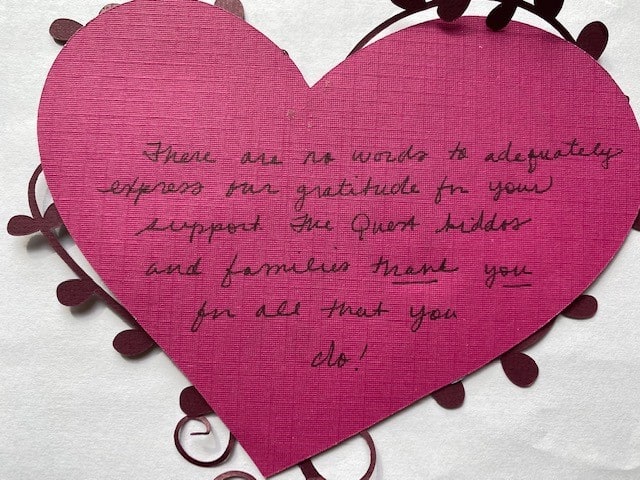 There are no words to adequately
express our gratitude for your
support. The Quest kiddos
and families thank you
for all that you
do!